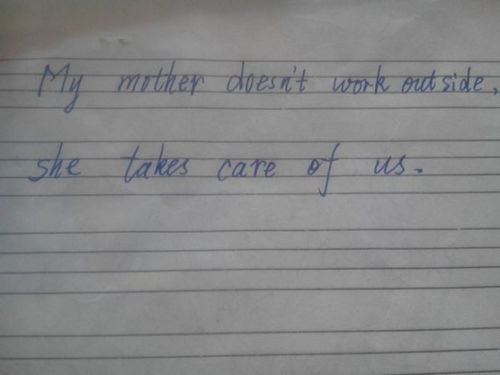 My mother doesn't work outside,
she takes care of us.